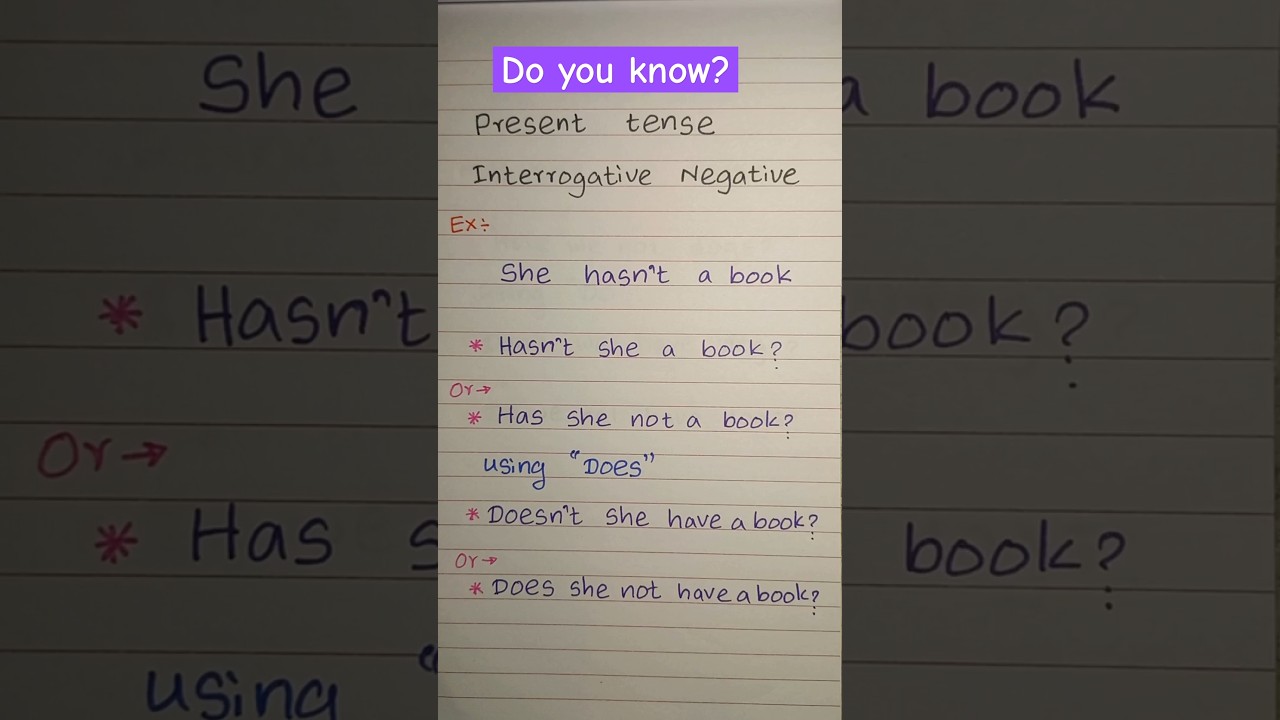 Do you know?
Present tense
Interrogative Negative
Ex÷
She hasn't a book
* Hasn't she a book?
Or→
* Has she not a book?
using "Does"
* Doesn't she have a book?
Or→
* Does she not have a book?
She
a book
* Hasn't
book?
Or→
* Has s
book?
using "